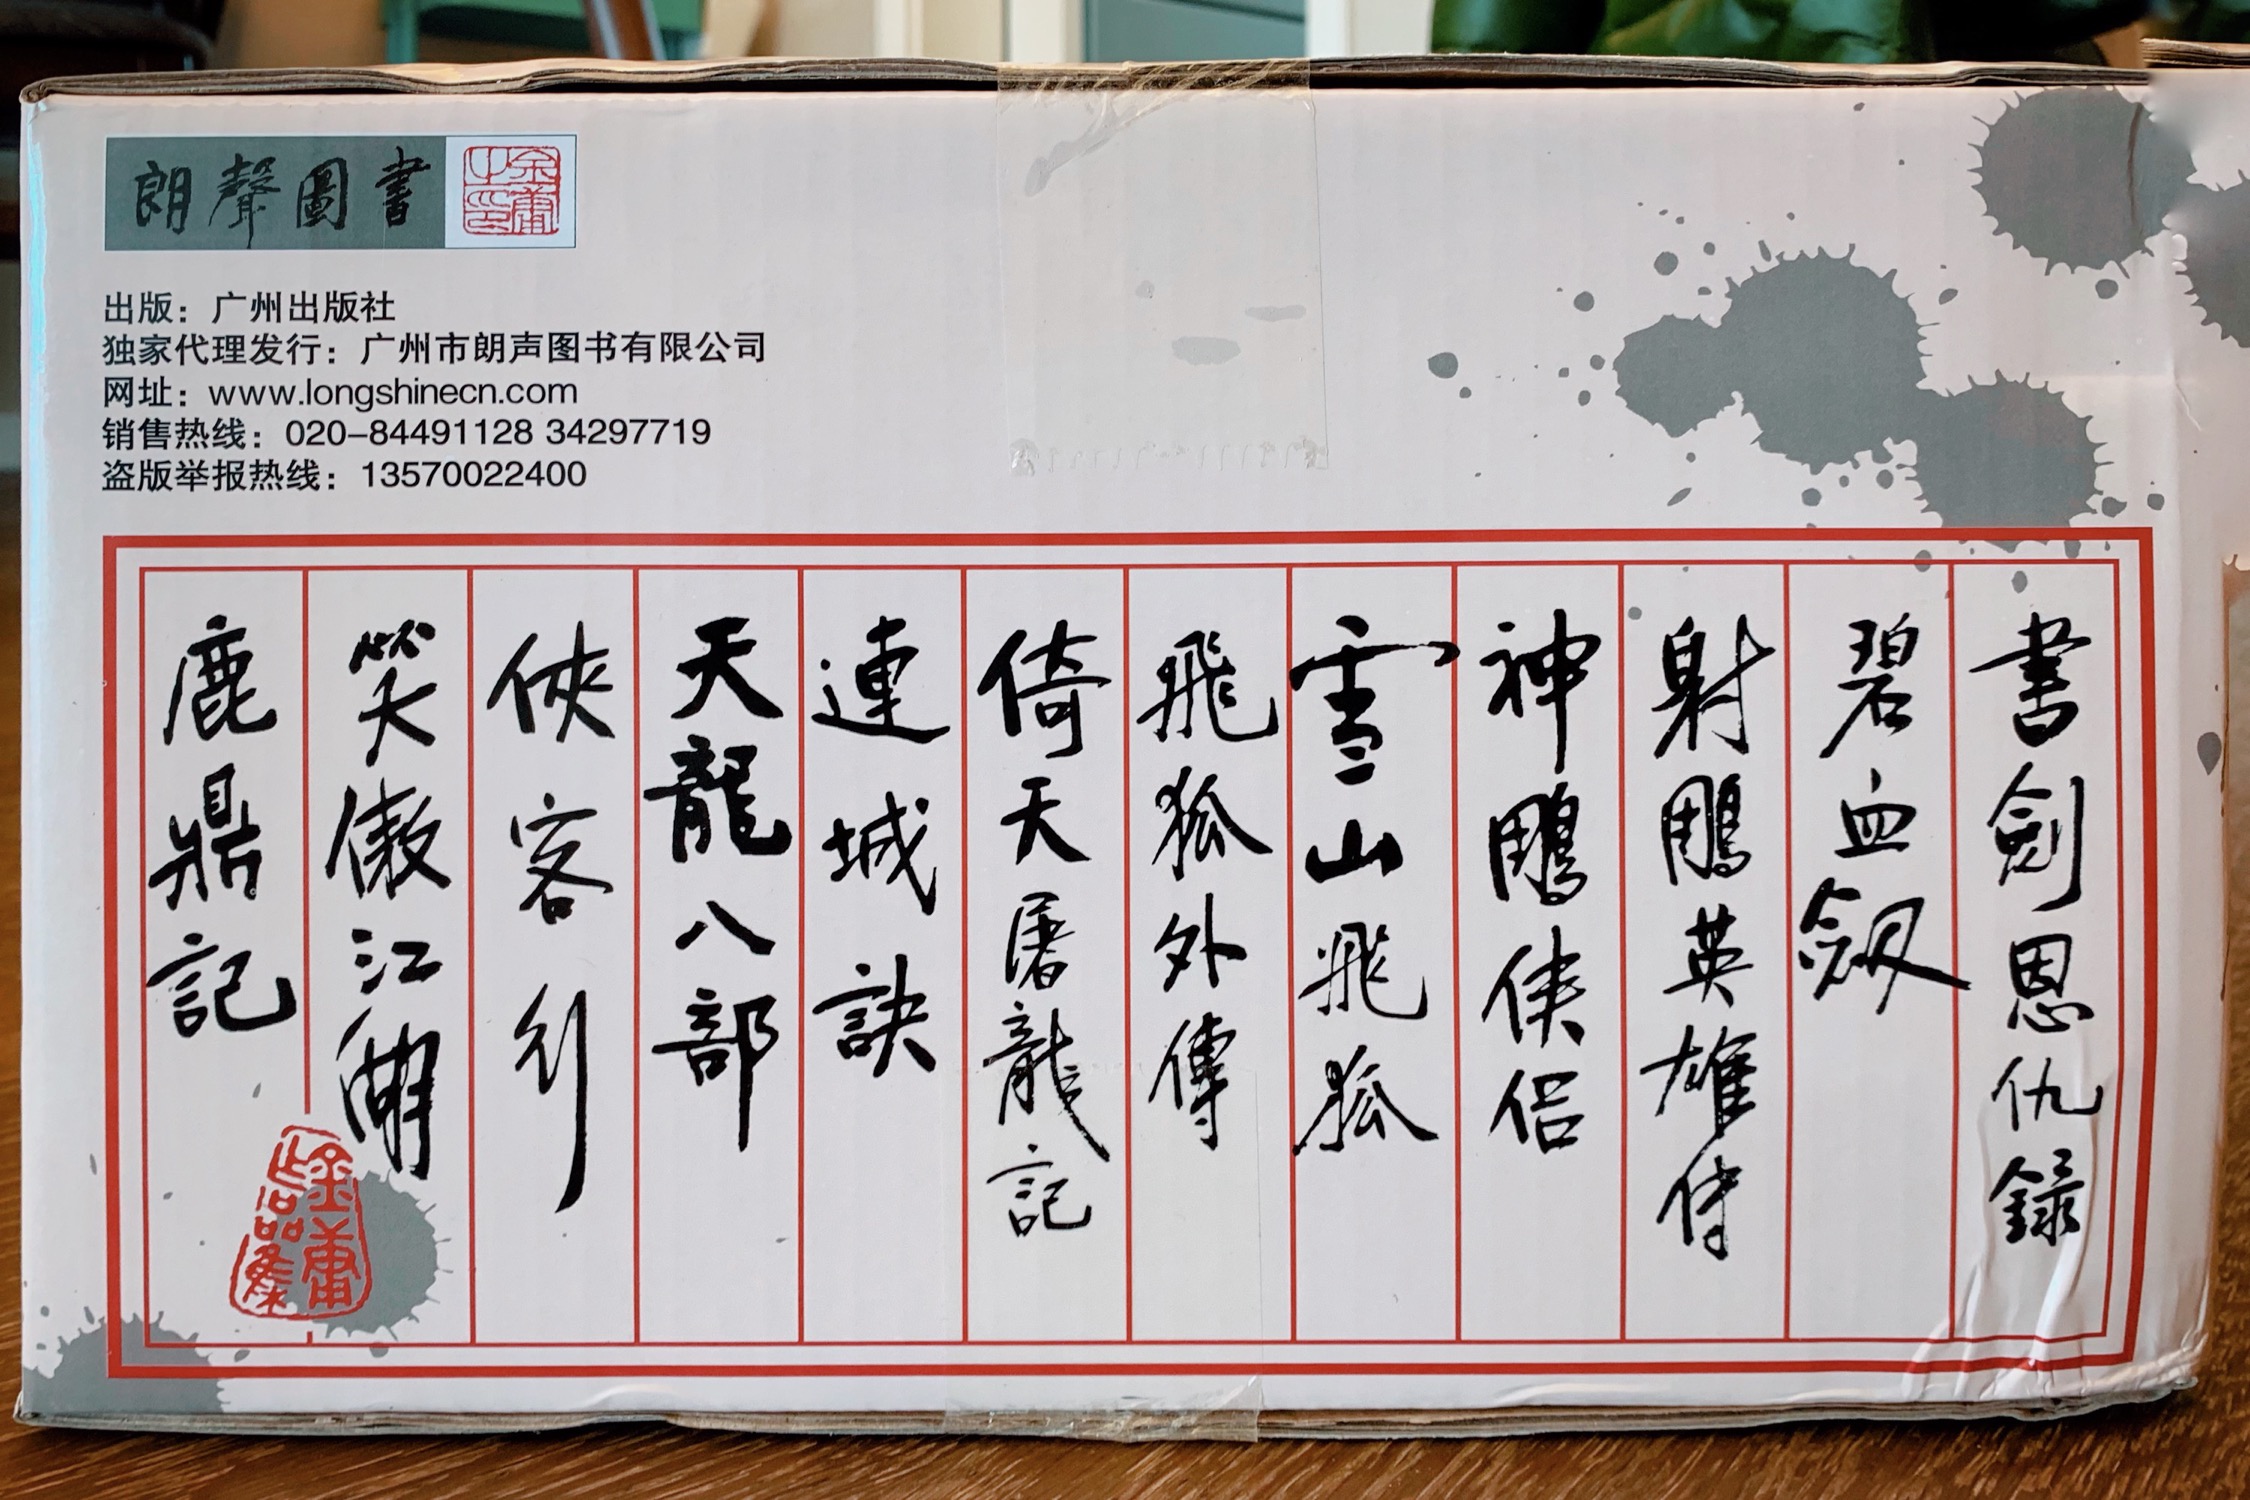 朗聲圖書
金庸
出版：广州出版社
独家代理发行：广州市朗声图书有限公司
网址：www.longshinecn.com
销售热线：020-84491128 34297719
盗版举报热线：13570022400
書劍恩仇錄
碧血劔
射鵰英雄傳
神鵰俠侶
雪山飛狐
飛狐外傳
倚天屠龍記
連城訣
天龍八部
俠客行
笑傲江湖
鹿鼎記
金庸作品集